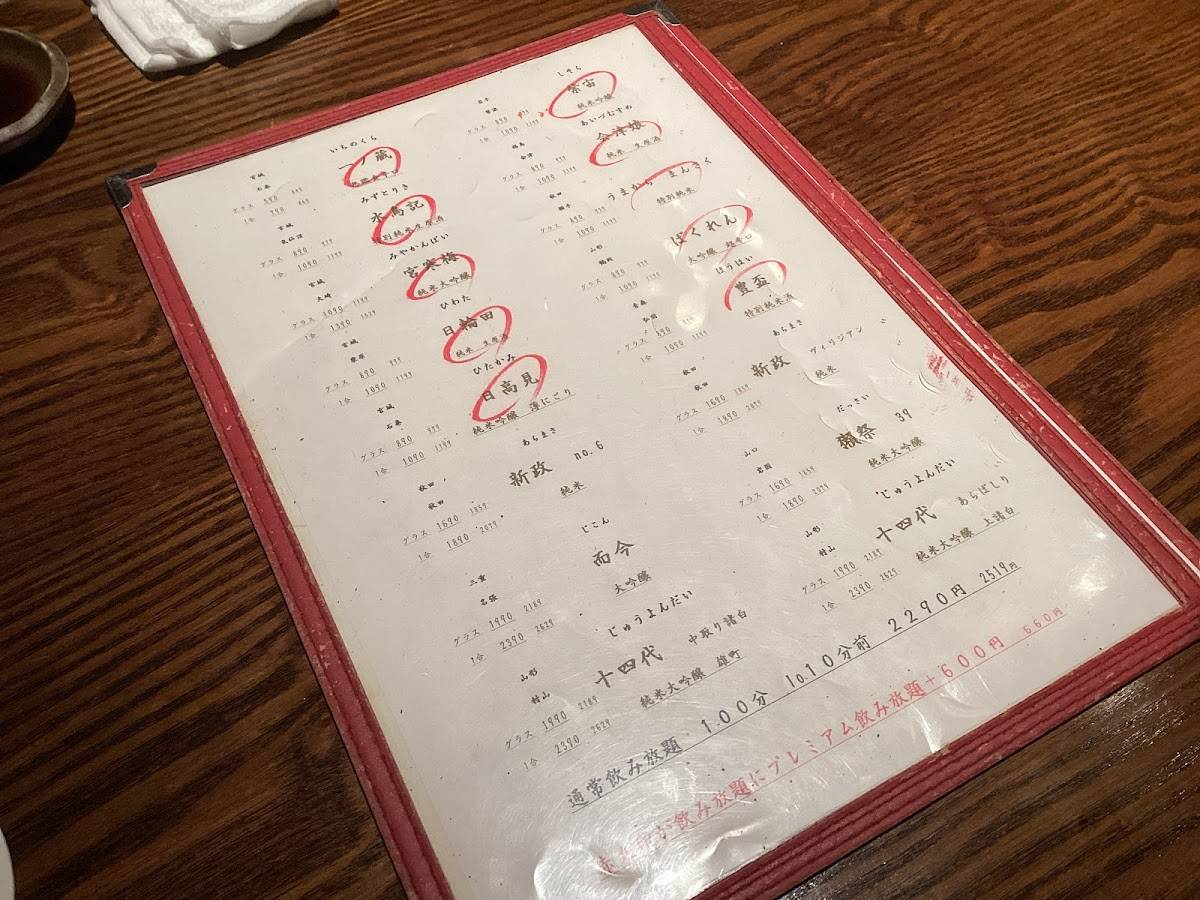 いちのくら
一ノ蔵
宮城
石巻
グラス 590 649
1合 790
みずとりき
水鳥記
特別純米生原酒
宮城
気仙沼
グラス 890 979
1合 1090 1199
みやかんばい
宮寒梅
純米大吟醸
宮城
大崎
グラス 1090 1199
1合 1390 1529
ひわた
日輪田
純米 生原酒
宮城
栗原
グラス 890 979
1合 1090 1199
ひたかみ
日高見
純米吟醸 薄にごり
宮城
石巻
グラス 890 979
1合 1090 1199
あらまさ
新政 no.6
純米
秋田
秋田
グラス 1690 1859
1合 1890 2079
じこん
而今
大吟醸
三重
名張
グラス 1990 2189
1合 2390 2629
じゅうよんだい
十四代 中取り諸白
純米大吟醸 雄町
山形
村山
グラス 1990 2189
1合 2390 2629
しそら
紫宙
純米吟醸
岩手
紫波
グラス 890 979
1合 1090 1199
あいづむすめ
会津娘
純米 生原酒
福島
会津
グラス 890 979
1合 1090 1199
うまからまんさく
特別純米
秋田
横手
グラス 890 979
1合 1090 1199
ばくれん
大吟醸 超辛口
山形
鶴岡
グラス 890 979
1合 1090 1199
ほうはい
豊盃
特別純米酒
青森
弘前
グラス 890 979
1合 1090 1199
あらまさ
新政 ヴィリジアン
純米
秋田
秋田
グラス 1690 1859
1合 1890 2079
だっさい
獺祭 39
純米大吟醸
山口
岩国
グラス 1690 1859
1合 1890 2079
じゅうよんだい
十四代 あらばしり
純米大吟醸 上諸白
山形
村山
グラス 1990 2189
1合 2390 2629
通常飲み放題 100分 lo.10分前 2290円 2519円
飲み放題にプレミアム飲み放題+600円 660円